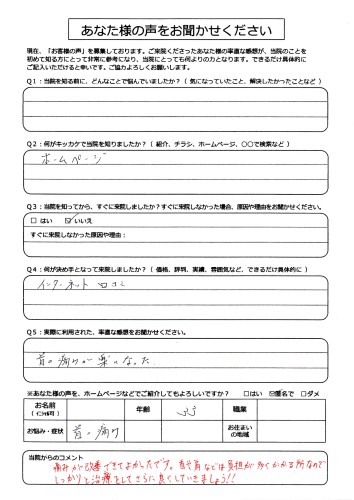 あなた様の声をお聞かせください
現在、「お客様の声」を募集しております。ご来院くださったあなた様の率直な感想が、当院のことを
初めて知る方にとって非常に参考になり、当院にとっても何よりの力となります。できるだけ具体的に
ご記入いただけると幸いです。ご協力よろしくお願いします。
Q1：当院を知る前に、どんなことで悩んでいましたか？（ 気になっていたこと、解決したかったことなど ）
Q2：何がキッカケで当院を知りましたか？（ 紹介、チラシ、ホームページ、〇〇で検索など ）
ホームページ
Q3：当院を知ってから、すぐに来院しましたか？すぐに来院しなかった場合、原因や理由をお聞かせください。
□ はい ☑ いいえ
すぐに来院しなかった原因や理由：
Q4：何が決め手となって来院しましたか？（ 価格、評判、実績、雰囲気など、できるだけ具体的に ）
インターネット 口コミ
Q5：実際に利用された、率直な感想をお聞かせください。
首の痛みが楽になった
※あなた様の声を、ホームページなどでご紹介してもよろしいですか？ □はい ☑匿名で □ダメ
お名前 年齢 職業
お悩み・症状 首の痛み お住まい
の地域
当院からのコメント
痛みが改善できてよかったです。首や肩などは負担が多くかかる所なので
しっかりと治療をしてさらに良くしていきましょう!!